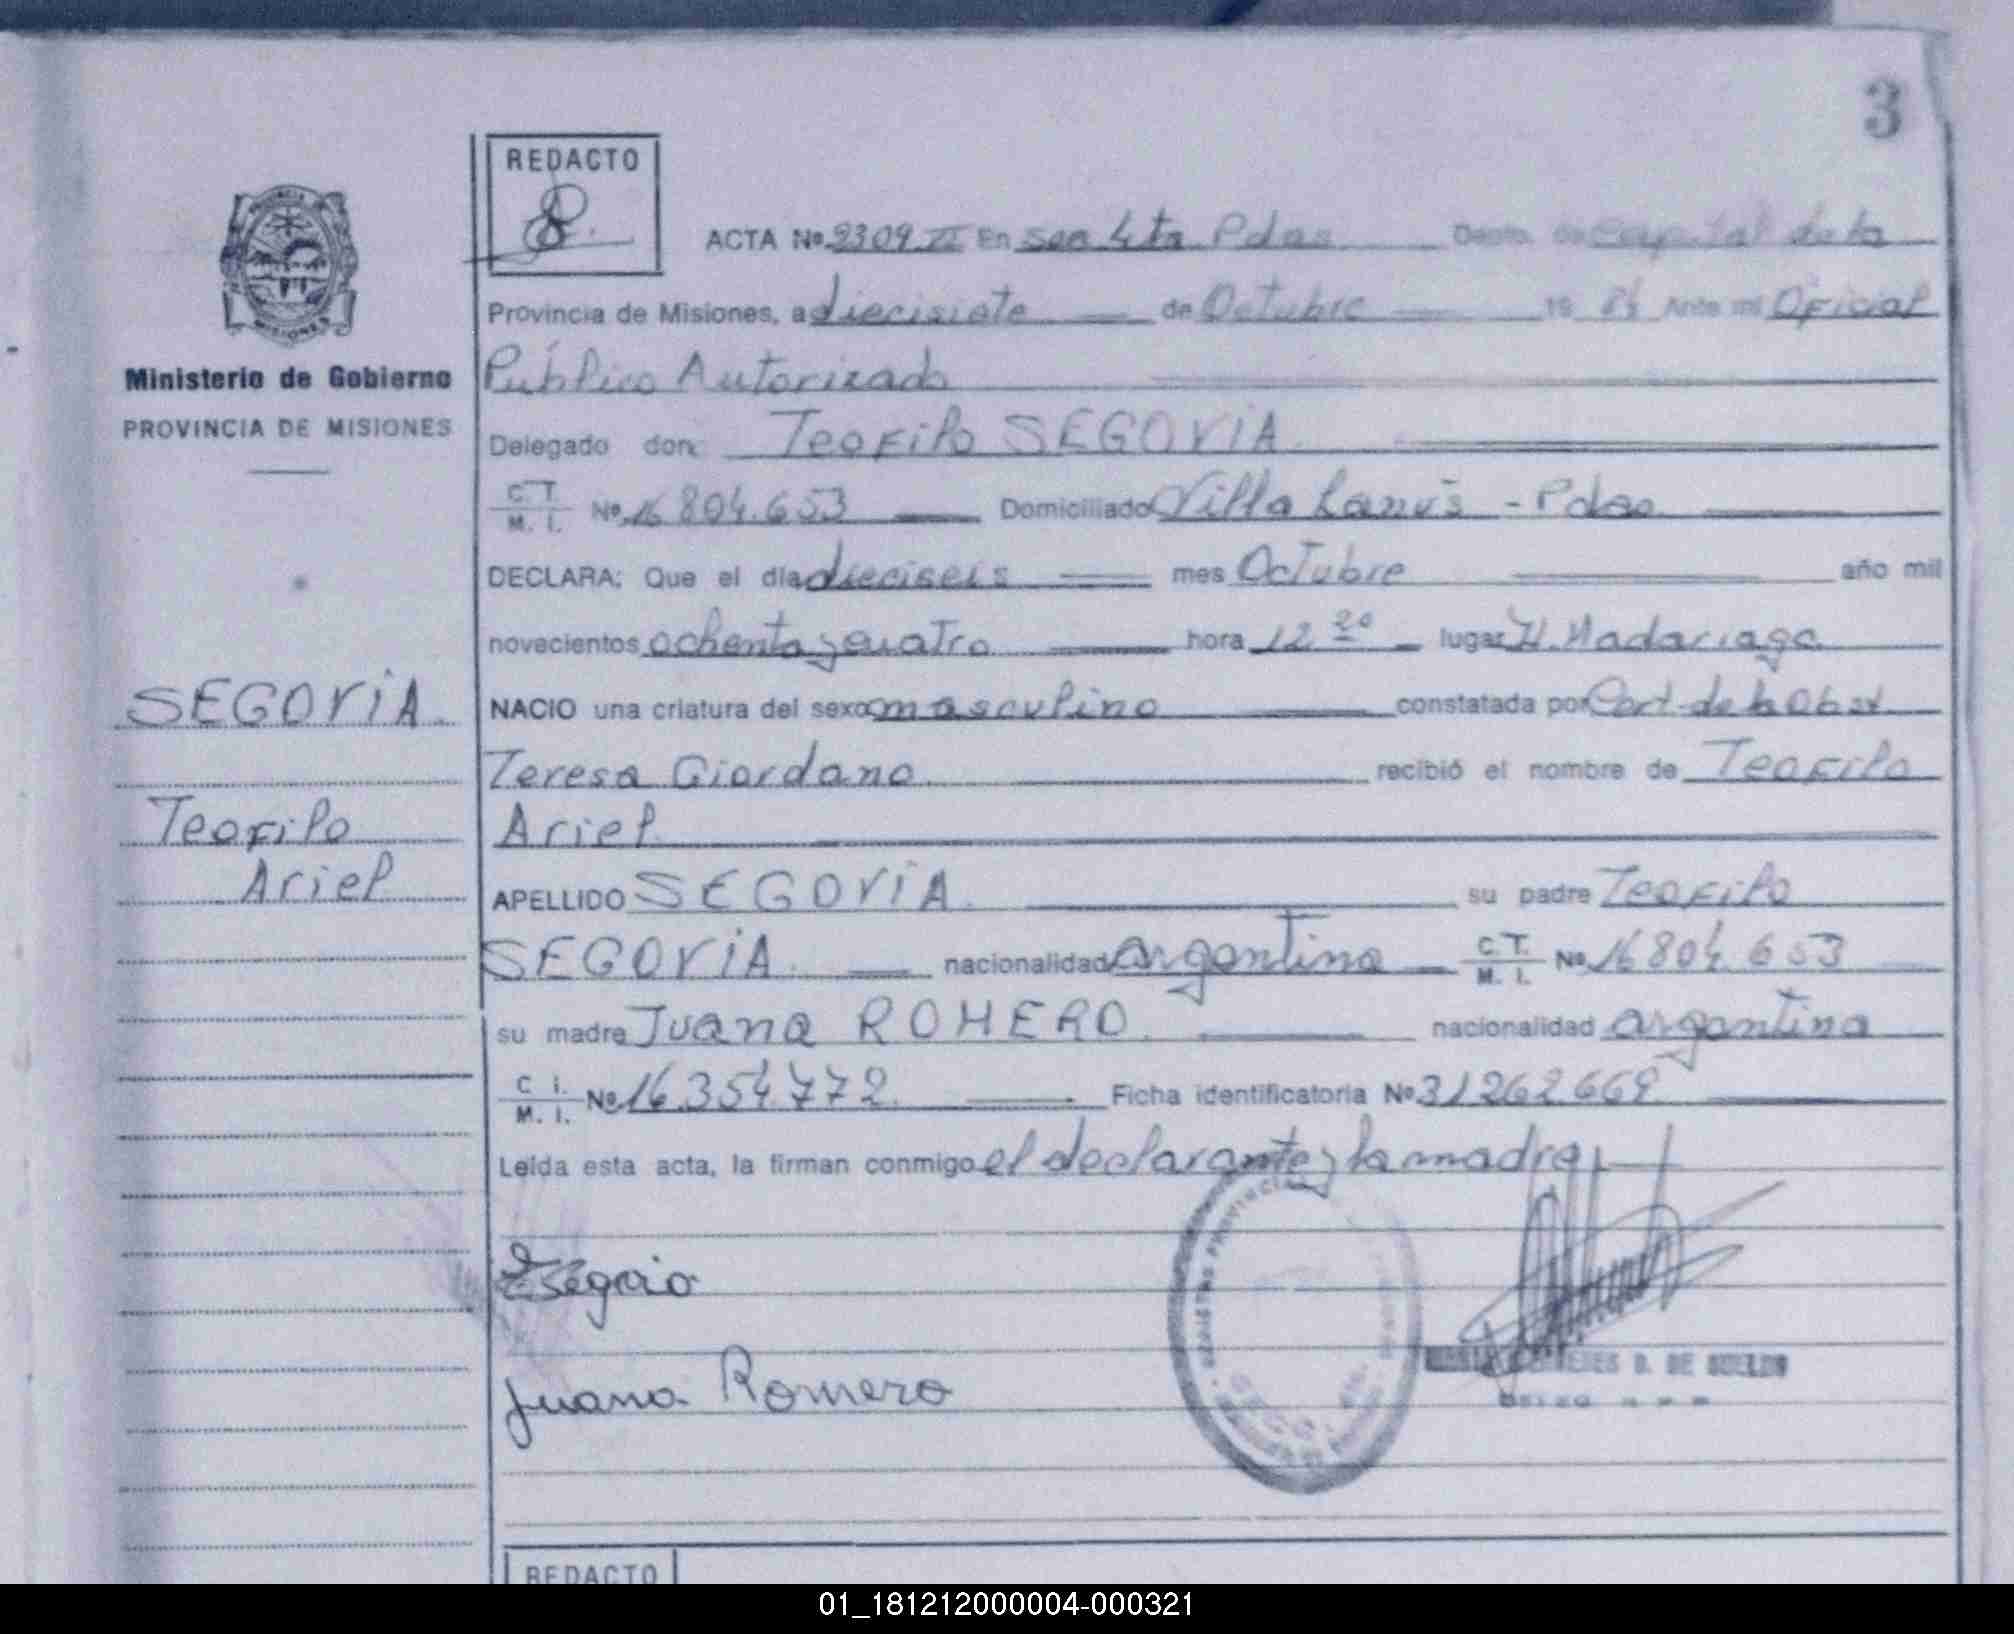 3
REDACTO
ACTA Nº 2309 II En Sec 4ta Pdas Depto. de Capital de la
Provincia de Misiones, a diecisiete de Octubre 19 84 Ante mi Oficial
Público Autorizado
Ministerio de Gobierno
PROVINCIA DE MISIONES
Delegado don: Teofilo SEGOVIA
C.T. M. I. Nº 16 804.653 Domiciliado Villa Lanús - Pdas
DECLARA: Que el día dieciseis mes Octubre año mil
novecientos ochenta y cuatro hora 12 20 lugar H. Madariaga
NACIO una criatura del sexo masculino constatada por Cert. de la Obst
Teresa Giordano recibió el nombre de Teofilo
Ariel
SEGOVIA
Teofilo
Ariel
APELLIDO SEGOVIA su padre Teofilo
SEGOVIA nacionalidad argentina C.T. M. I. Nº 16804.653
su madre Juana ROMERO nacionalidad argentina
C. I. M. I. Nº 16.354.772 Ficha identificatoria Nº 31262.669
Leída esta acta, la firman conmigo el declarante y la madre
Juana Romero
D. DE
REDACTO
01_181212000004-000321